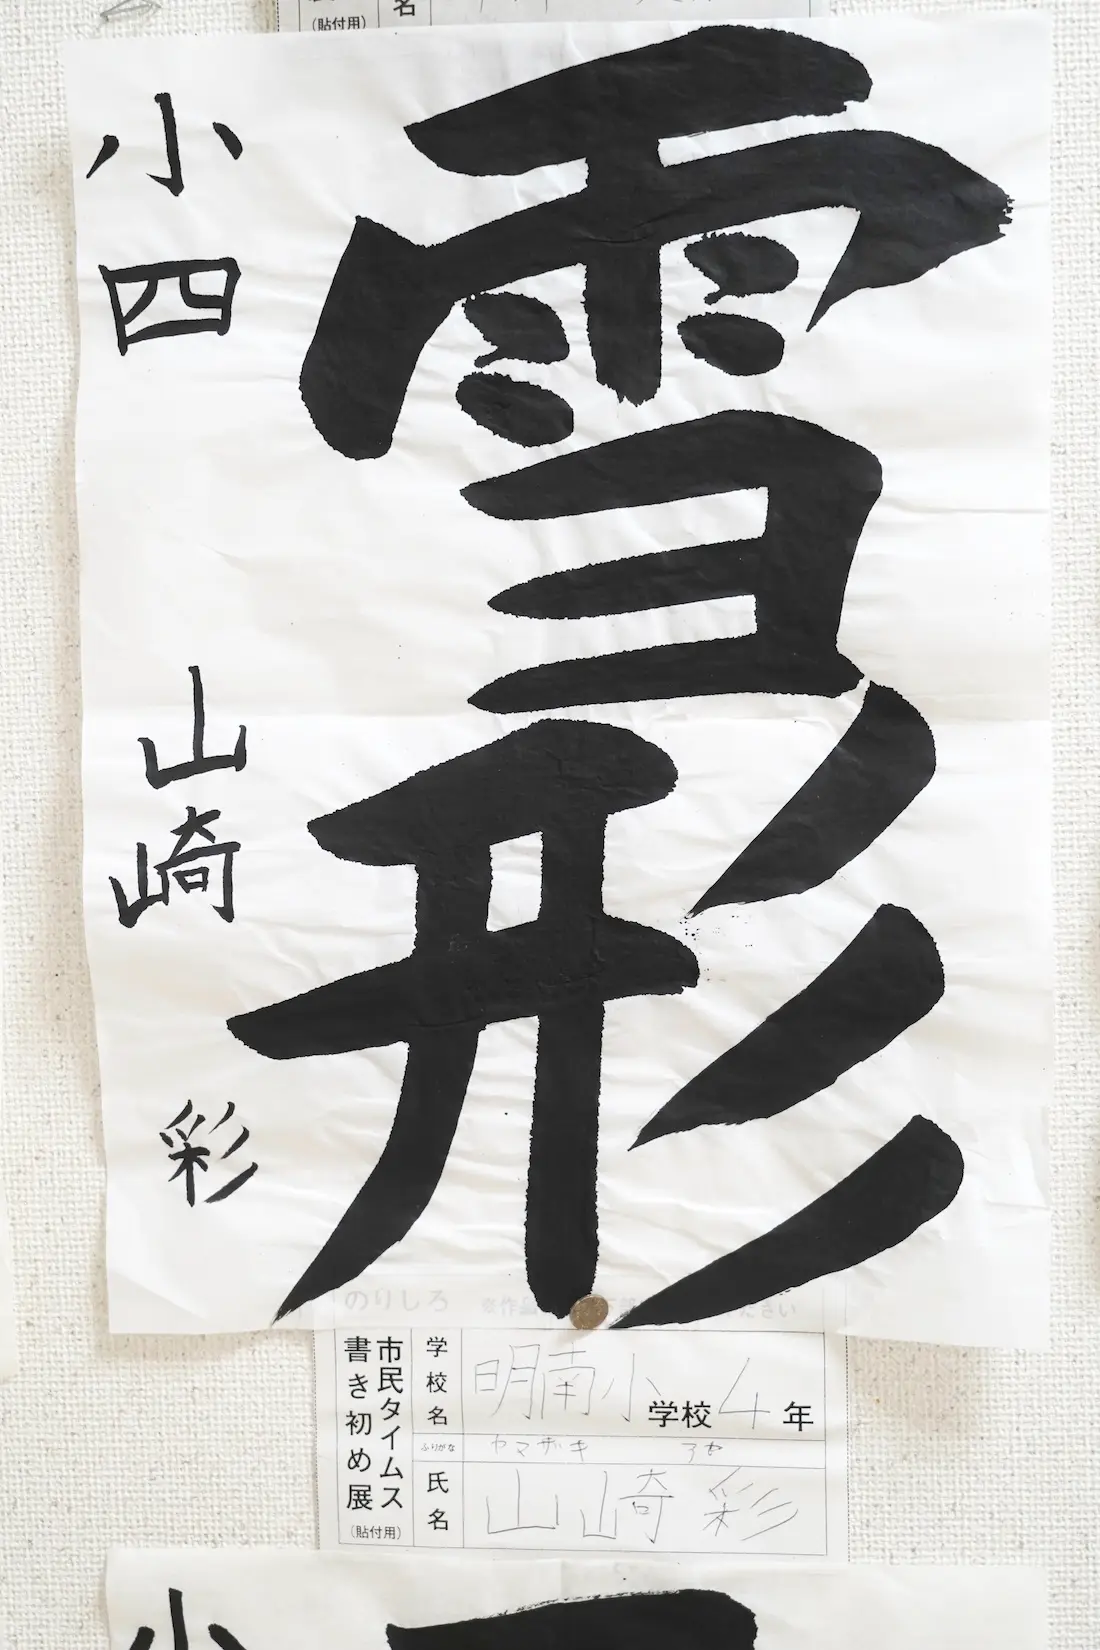 (貼付用)
名
雪形
小四
山崎
彩
のりしろ
※作品
ださい
市民タイムス
書き初め展
(貼付用)
学校名
明南小学校4年
ふりがな
ヤマザキ
氏名
山崎 彩
小